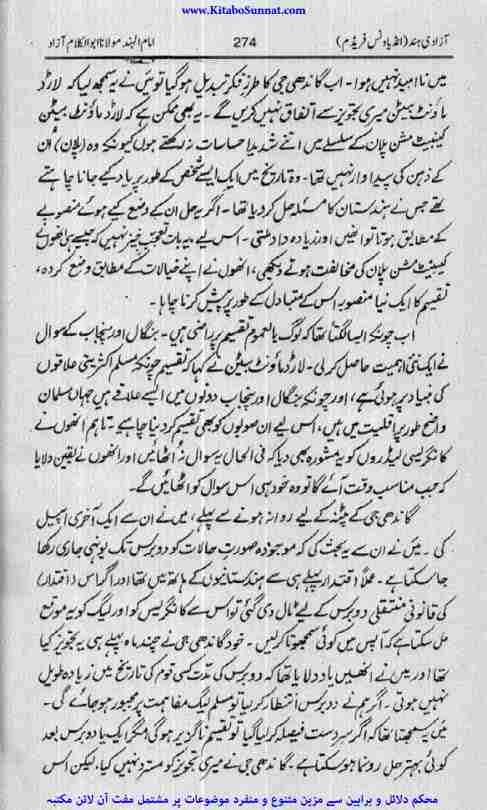 www.KitaboSunnat.com
آزادی ہند (انڈیا ونس فریڈم) 274 امام الہند مولانا ابوالکلام آزاد
میں ناامید نہیں ہوا۔ اب گاندھی جی کا طرز فکر تبدیل ہوگیا تو میں نے سمجھ لیا کہ لارڈ
ماؤنٹ بیٹن میری تجویز سے اتفاق نہیں کریں گے۔ یہ بھی ممکن ہے کہ لارڈ ماؤنٹ بیٹن
کیبنیٹ مشن پلان کے سلسلے میں اتنے شدید احساسات نہ رکھتے ہوں کیونکہ وہ (پلان) ان
کے ذہن کی پیداوار نہیں تھا۔ وہ تاریخ میں ایک ایسے شخص کے طور پر یاد کیے جانا چاہتے
تھے جس نے ہندستان کا مسئلہ حل کردیا تھا۔ اگر یہ حل ان کے وضع کیے ہوئے منصوبے
کے مطابق ہوتا تو انھیں اور زیادہ داد ملتی۔ اس لیے یہ بات تعجب خیز نہیں کہ جیسے ہی انھوں نے
کیبنیٹ مشن پلان کی مخالفت ہوتے دیکھی، انھوں نے اپنے خیالات کے مطابق وضع کردہ،
تقسیم کا ایک نیا منصوبہ اس کے متبادل کے طور پر پیش کرنا چاہا۔
اب چونکہ ایسا لگتا تھا کہ لوگ بالعموم تقسیم پر راضی ہیں۔ بنگال اور پنجاب کے سوال
نے ایک نئی اہمیت حاصل کرلی۔ لارڈ ماؤنٹ بیٹن نے کہا کہ تقسیم چونکہ مسلم اکثریتی علاقوں
کی بنیاد پر ہوئی ہے، اور چونکہ بنگال اور پنجاب دونوں میں ایسے علاقے ہیں جہاں مسلمان
واضح طور پر اقلیت میں ہیں، اس لیے ان صوبوں کو بھی تقسیم کردینا چاہیے۔ تاہم انھوں نے
کانگریسی لیڈروں کو یہ مشورہ بھی دیا کہ فی الحال یہ سوال نہ اٹھائیں اور انھوں نے یقین دلایا
کہ جب مناسب وقت آئے گا تو وہ خود ہی اس سوال کو اٹھائیں گے۔
گاندھی جی کے پٹنہ کے لیے روانہ ہونے سے پہلے، میں نے ان سے ایک آخری اپیل
کی۔ میں نے ان سے یہ بحث کی کہ موجودہ صورت حالات کو دو برس تک یونہی جاری رکھا
جاسکتا ہے۔ عملاً اقتدار پہلے ہی سے ہندستانیوں کے ہاتھ میں تھا اور اگر اس (اقتدار)
کی قانونی منتقلی دو برس کے لیے ٹال دی گئی تو اس سے کانگریس کو اور لیگ کو یہ موقع
مل سکتا ہے کہ آپس میں کوئی سمجھوتا کرلیں۔ خود گاندھی جی نے چند ماہ پہلے ہی یہ تجویز کیا
تھا اور میں نے انھیں یاد دلایا تھا کہ دو برس کی مدت کسی قوم کی تاریخ میں زیادہ طویل
نہیں ہوتی۔ اگر ہم نے دو برس انتظار کرلیا تو مسلم لیگ مفاہمت پر مجبور ہوجائے گی۔
میں یہ سمجھتا تھا کہ اگر سردست فیصلہ کرلیا گیا تو تقسیم ناگزیر ہوگی مگر ایک یا دو برس بعد
کوئی بہتر حل رونما ہوسکتا ہے۔ گاندھی جی نے میری تجویز کو مسترد نہیں کیا، لیکن اس
محکم دلائل و براہین سے مزین متنوع و منفرد موضوعات پر مشتمل مفت آن لائن مکتبہ